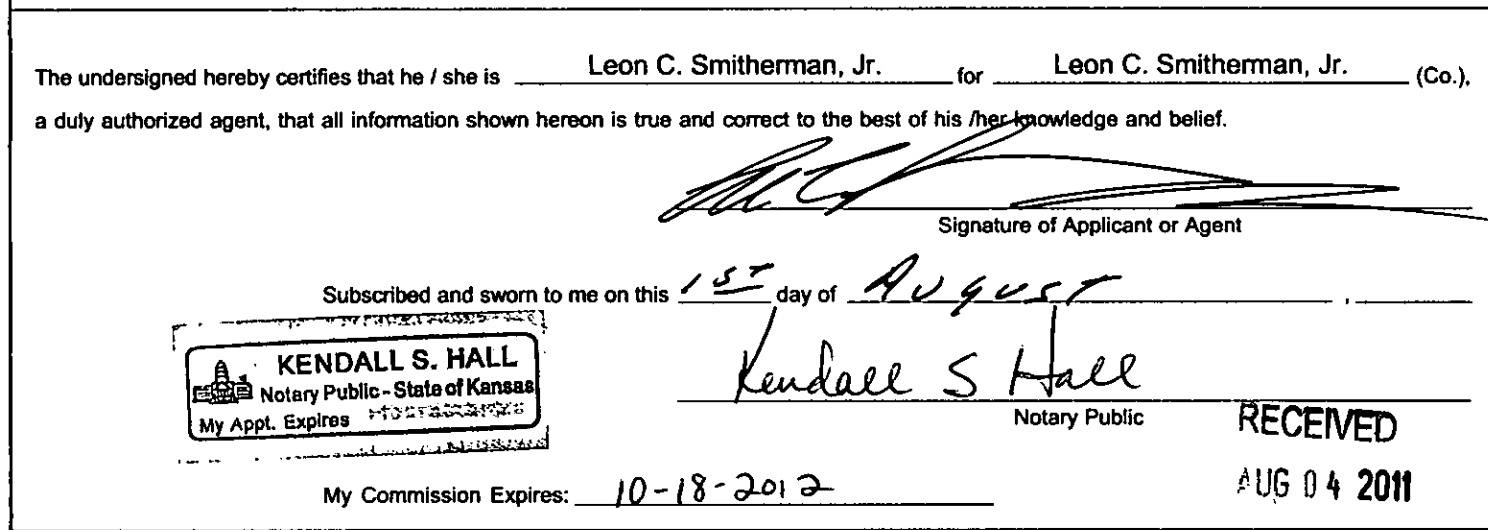 The undersigned hereby certifies that he / she is Leon C. Smitherman, Jr. for Leon C. Smitherman, Jr. (Co.),
a duly authorized agent, that all information shown hereon is true and correct to the best of his /her knowledge and belief.
Signature of Applicant or Agent
Subscribed and sworn to me on this 1ST day of AUGUST , 
Kendall S Hall
Notary Public
KENDALL S. HALL
Notary Public - State of Kansas
My Appt. Expires
RECEIVED
AUG 04 2011
My Commission Expires: 10-18-2012